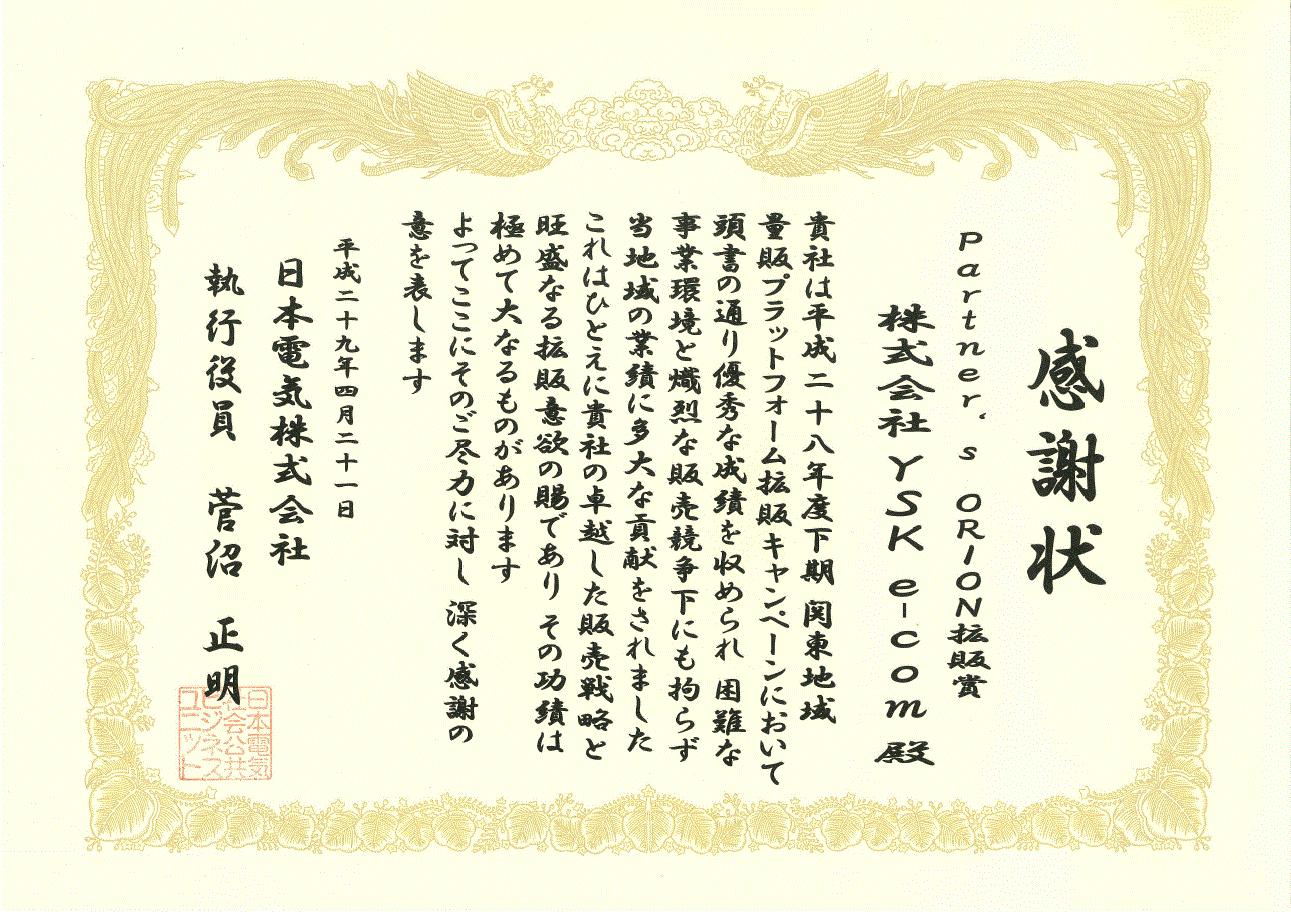 感謝状
Partner's ORION拡販賞
株式会社YSK e-com 殿
貴社は平成二十八年度下期 関東地域
量販プラットフォーム拡販キャンペーンにおいて
頭書の通り優秀な成績を収められ 困難な
事業環境と熾烈な販売競争下にも拘らず
当地域の業績に多大な貢献をされました
これはひとえに貴社の卓越した販売戦略と
旺盛なる拡販意欲の賜であり その功績は
極めて大なるものがあります
よってここにそのご尽力に対し 深く感謝の
意を表します
平成二十九年四月二十一日
日本電気株式会社
執行役員 菅沼 正明
日本電気
社会公共
ビジネス
ユニット